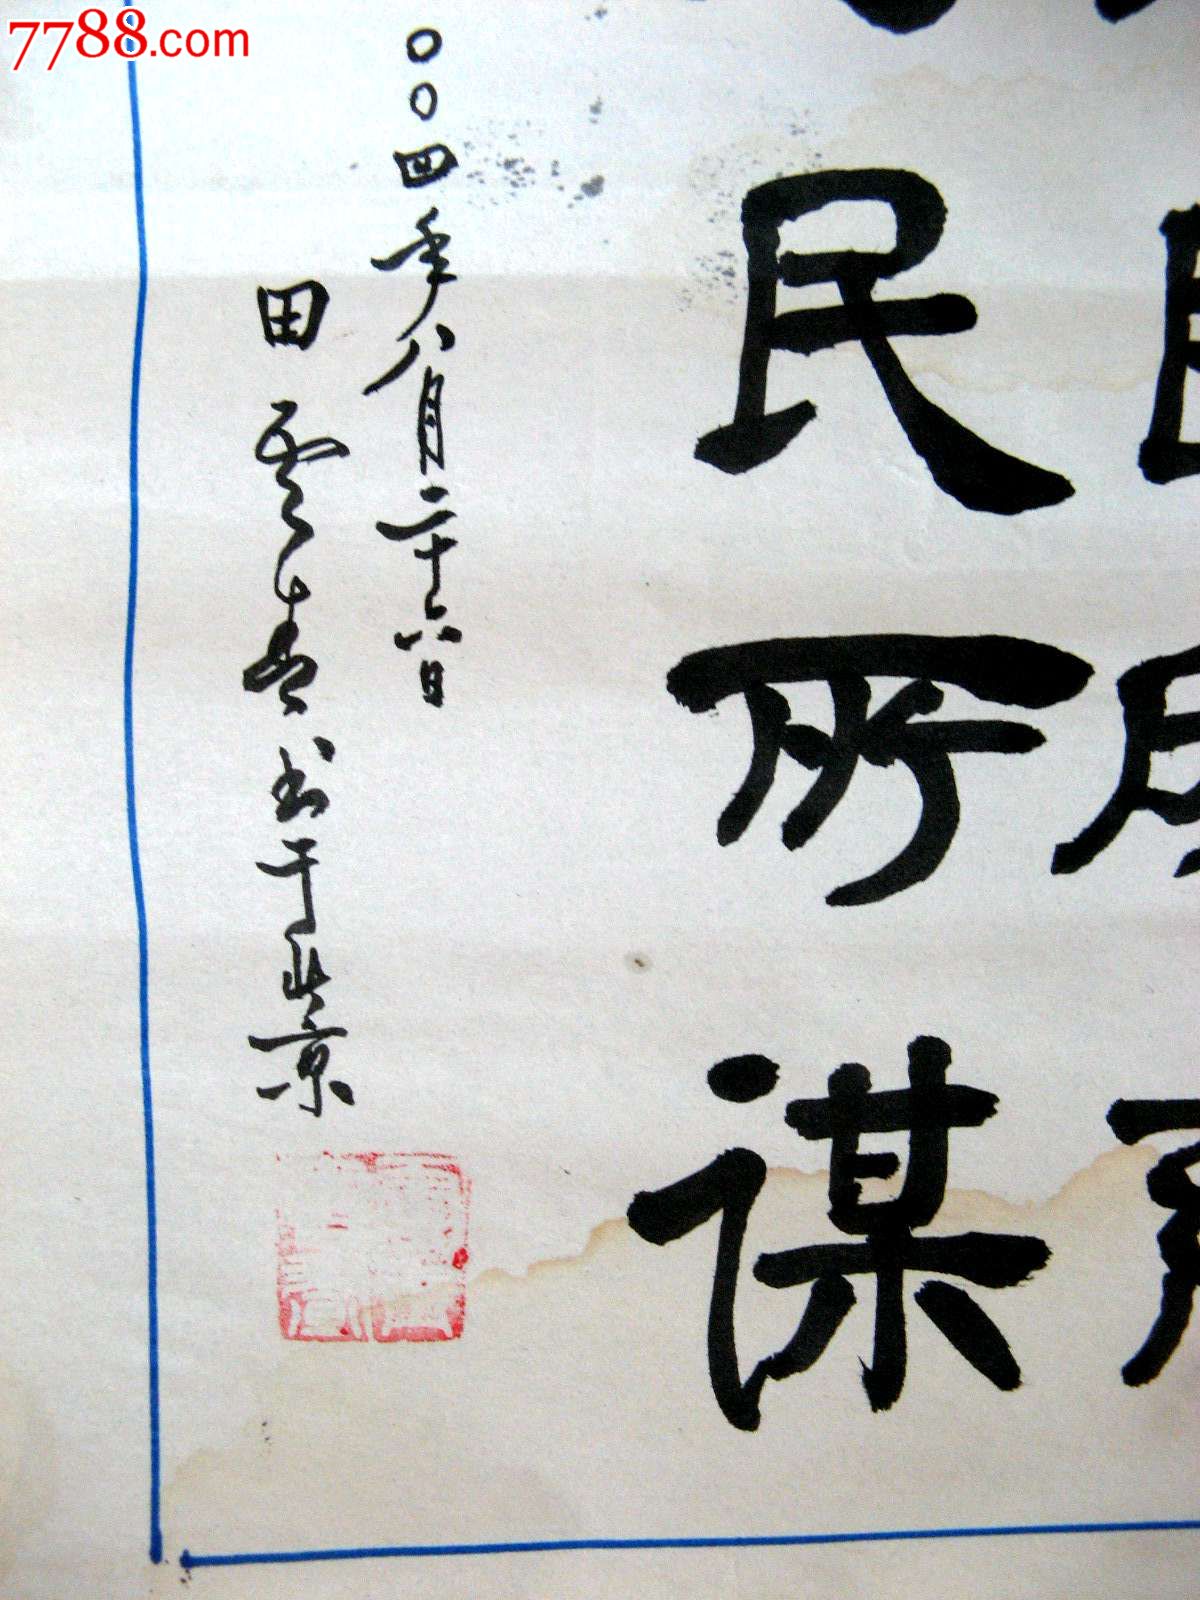 7788.com
民所谋
〇〇四年八月二十六日
田云书于北京